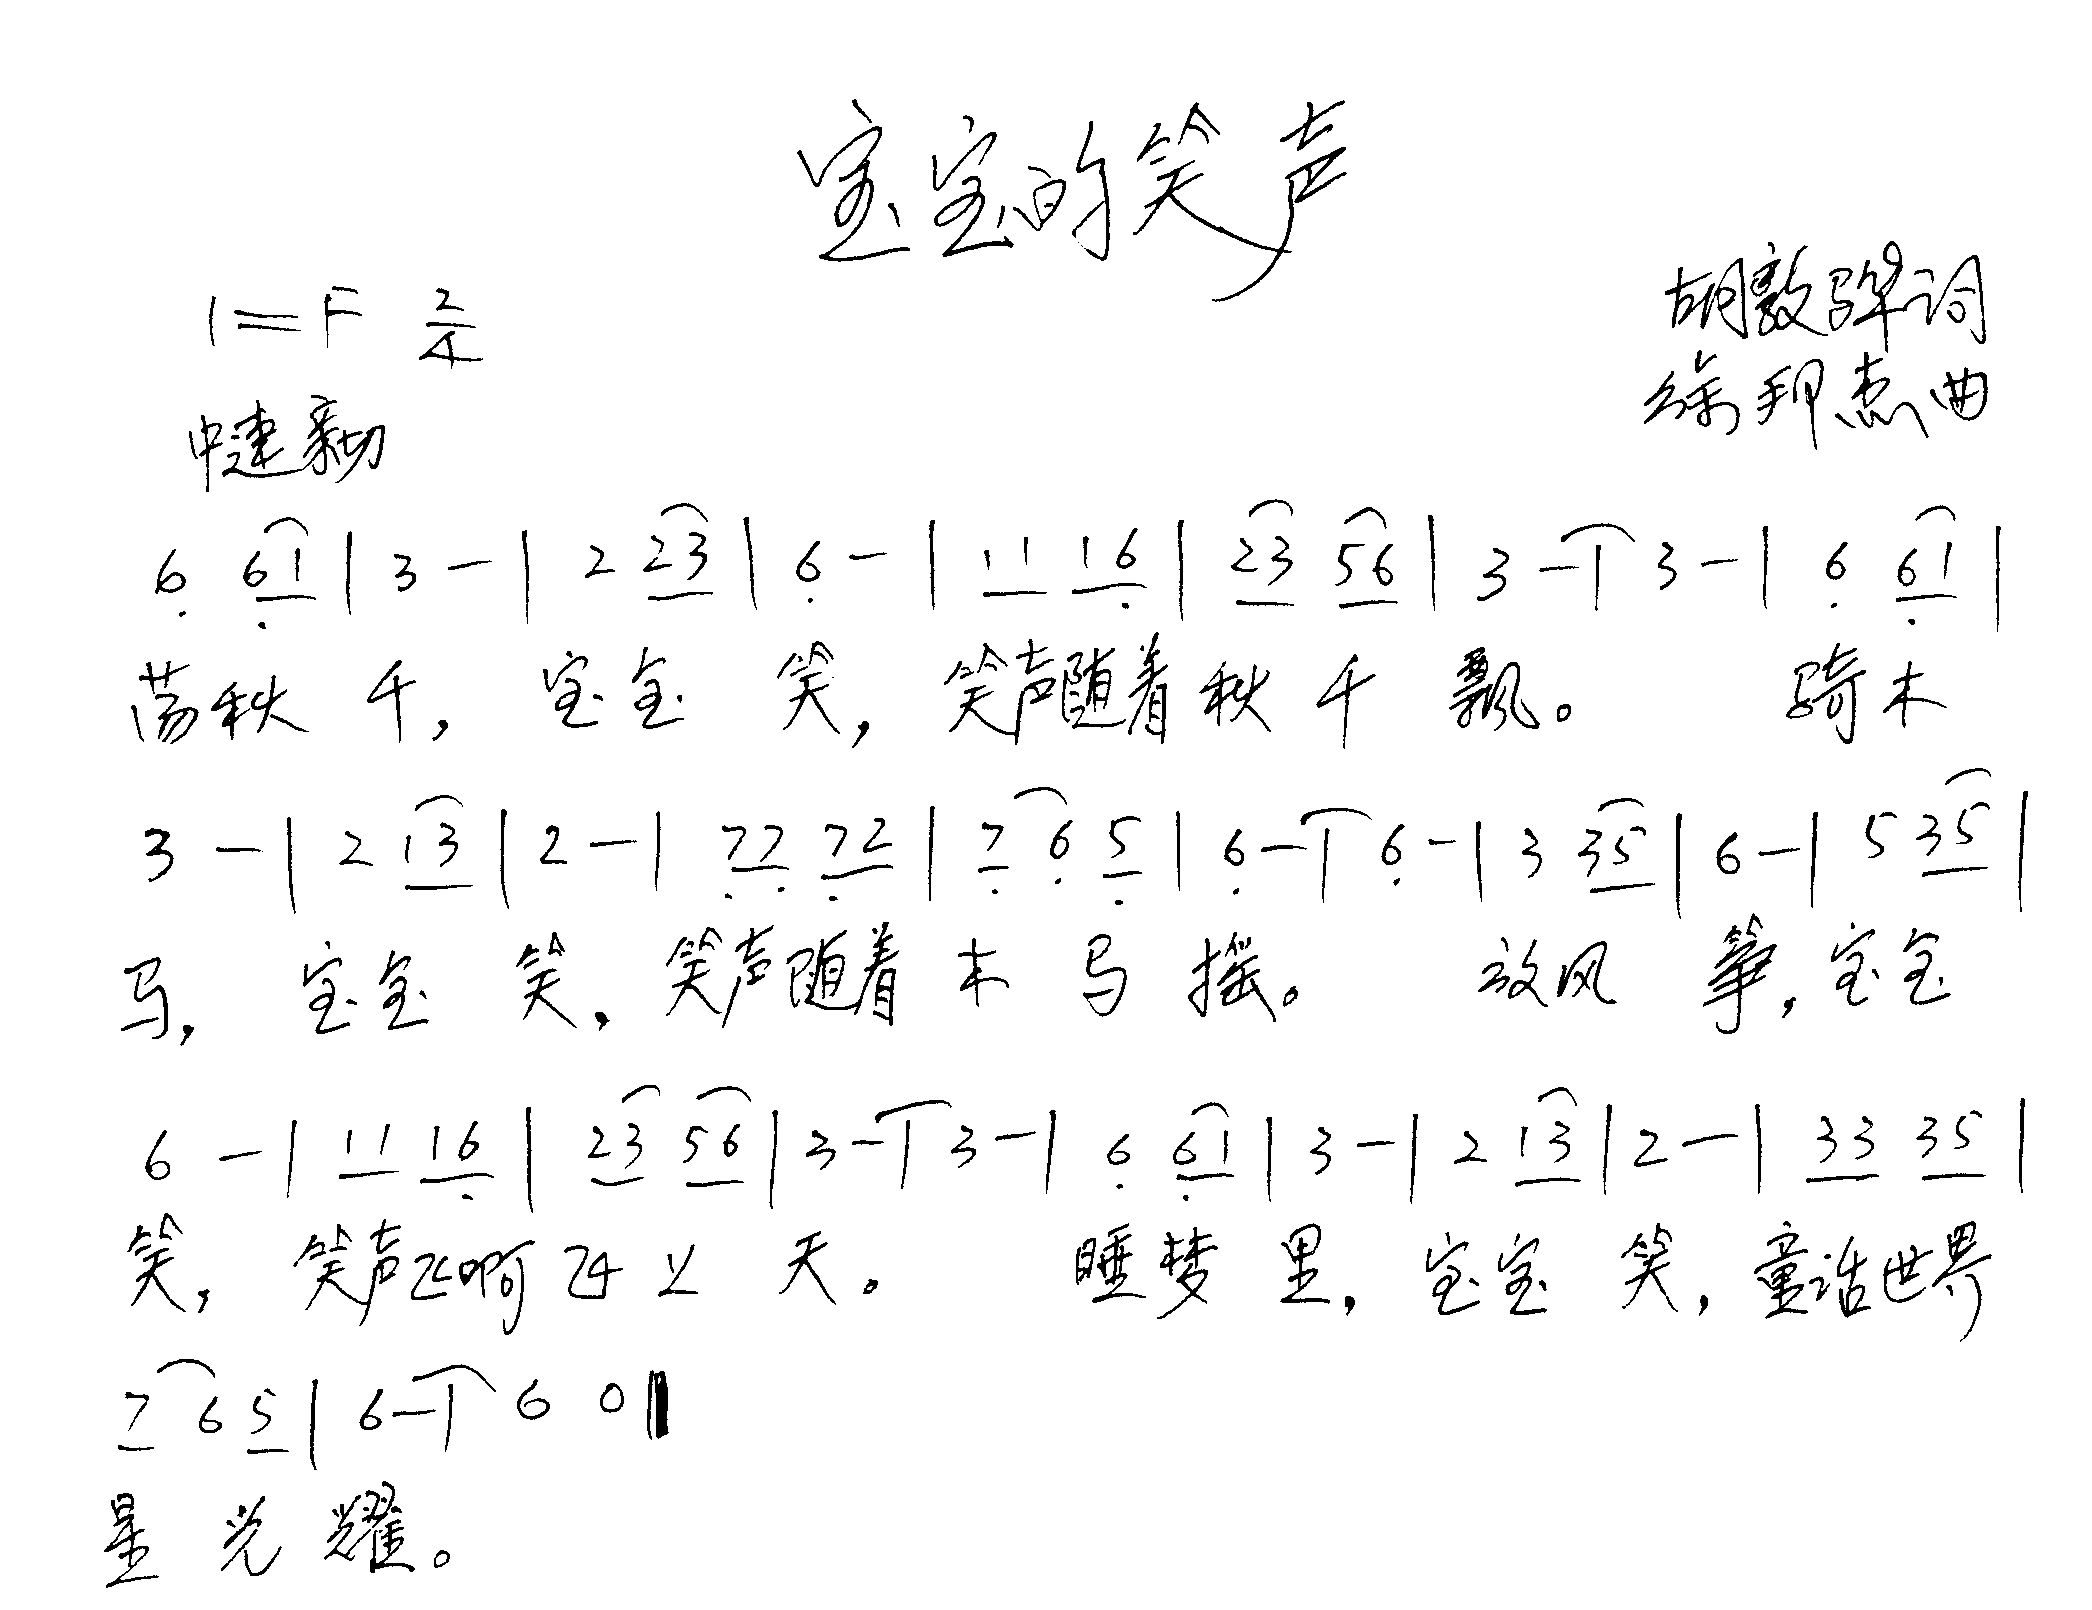 宝宝的笑声
1=F 2/4
胡敦骅词
中速 亲切
徐邦杰曲
6 61 | 3 - | 2 23 | 6 - | 11 16 | 23 56 | 3 - | 3 - | 6 61 |
荡秋千，宝宝笑，笑声随着秋千飘。骑木
3 - | 2 13 | 2 - | 77 72 | 7 6 5 | 6 - | 6 - | 3 35 | 6 - | 5 35 |
马，宝宝笑，笑声随着木马摇。放风筝，宝宝
6 - | 11 16 | 23 56 | 3 - | 3 - | 6 61 | 3 - | 2 13 | 2 - | 33 35 |
笑，笑声飞啊飞上天。睡梦里，宝宝笑，童话世界
7 6 5 | 6 - | 6 0 ‖
星光耀。